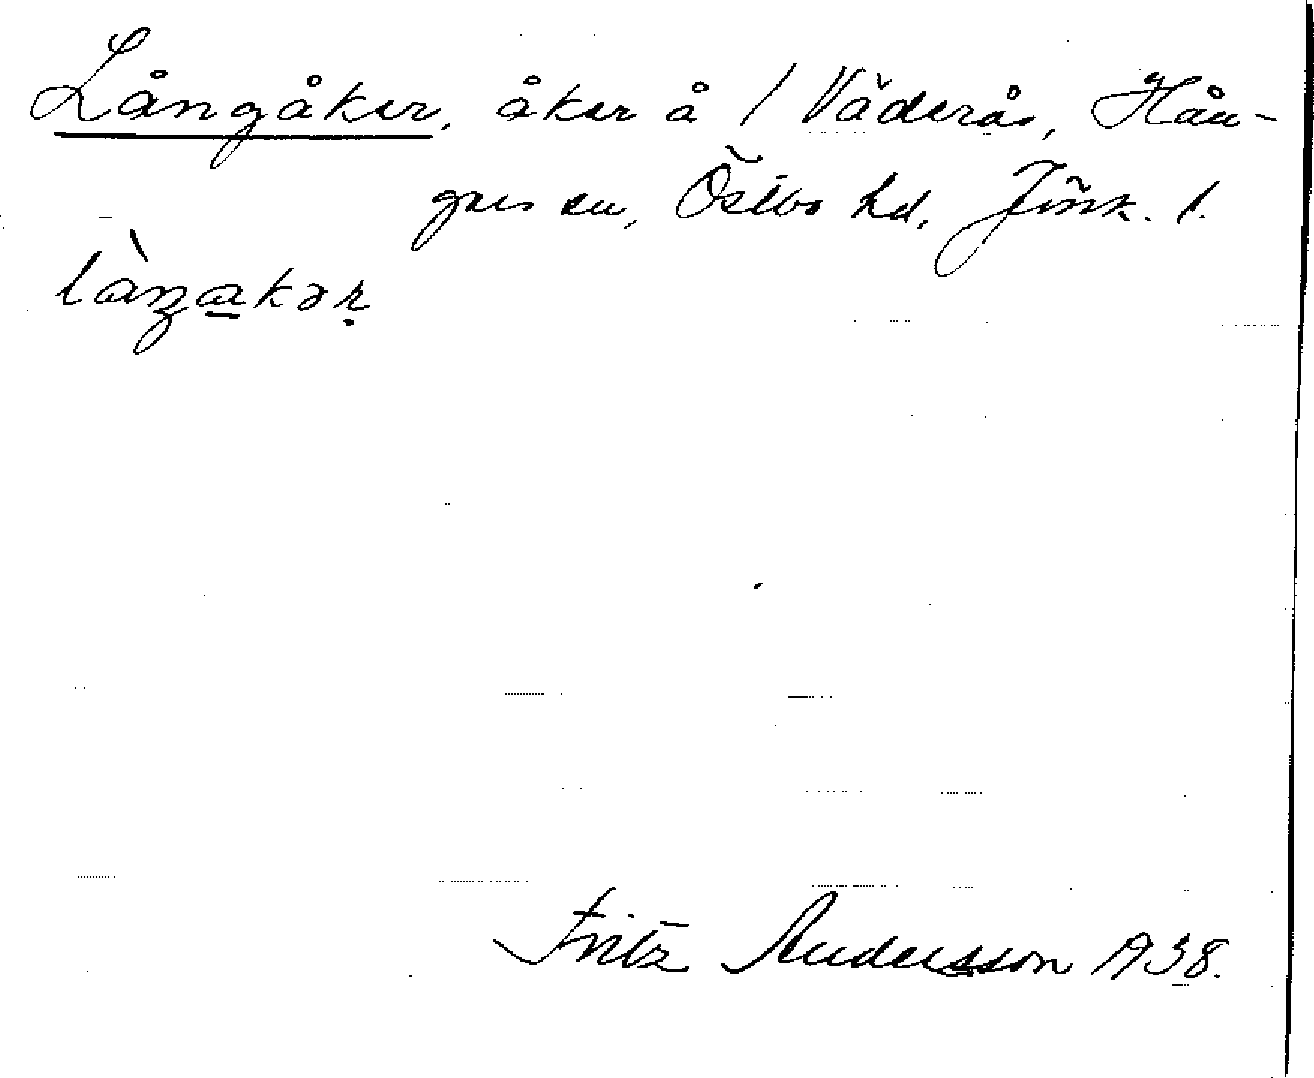 Långåker, åker å 1 Väderås, Hån-
gers sn, Östbo hd, Jönk. l.
làŋakər
Fritz Andersson 1938.